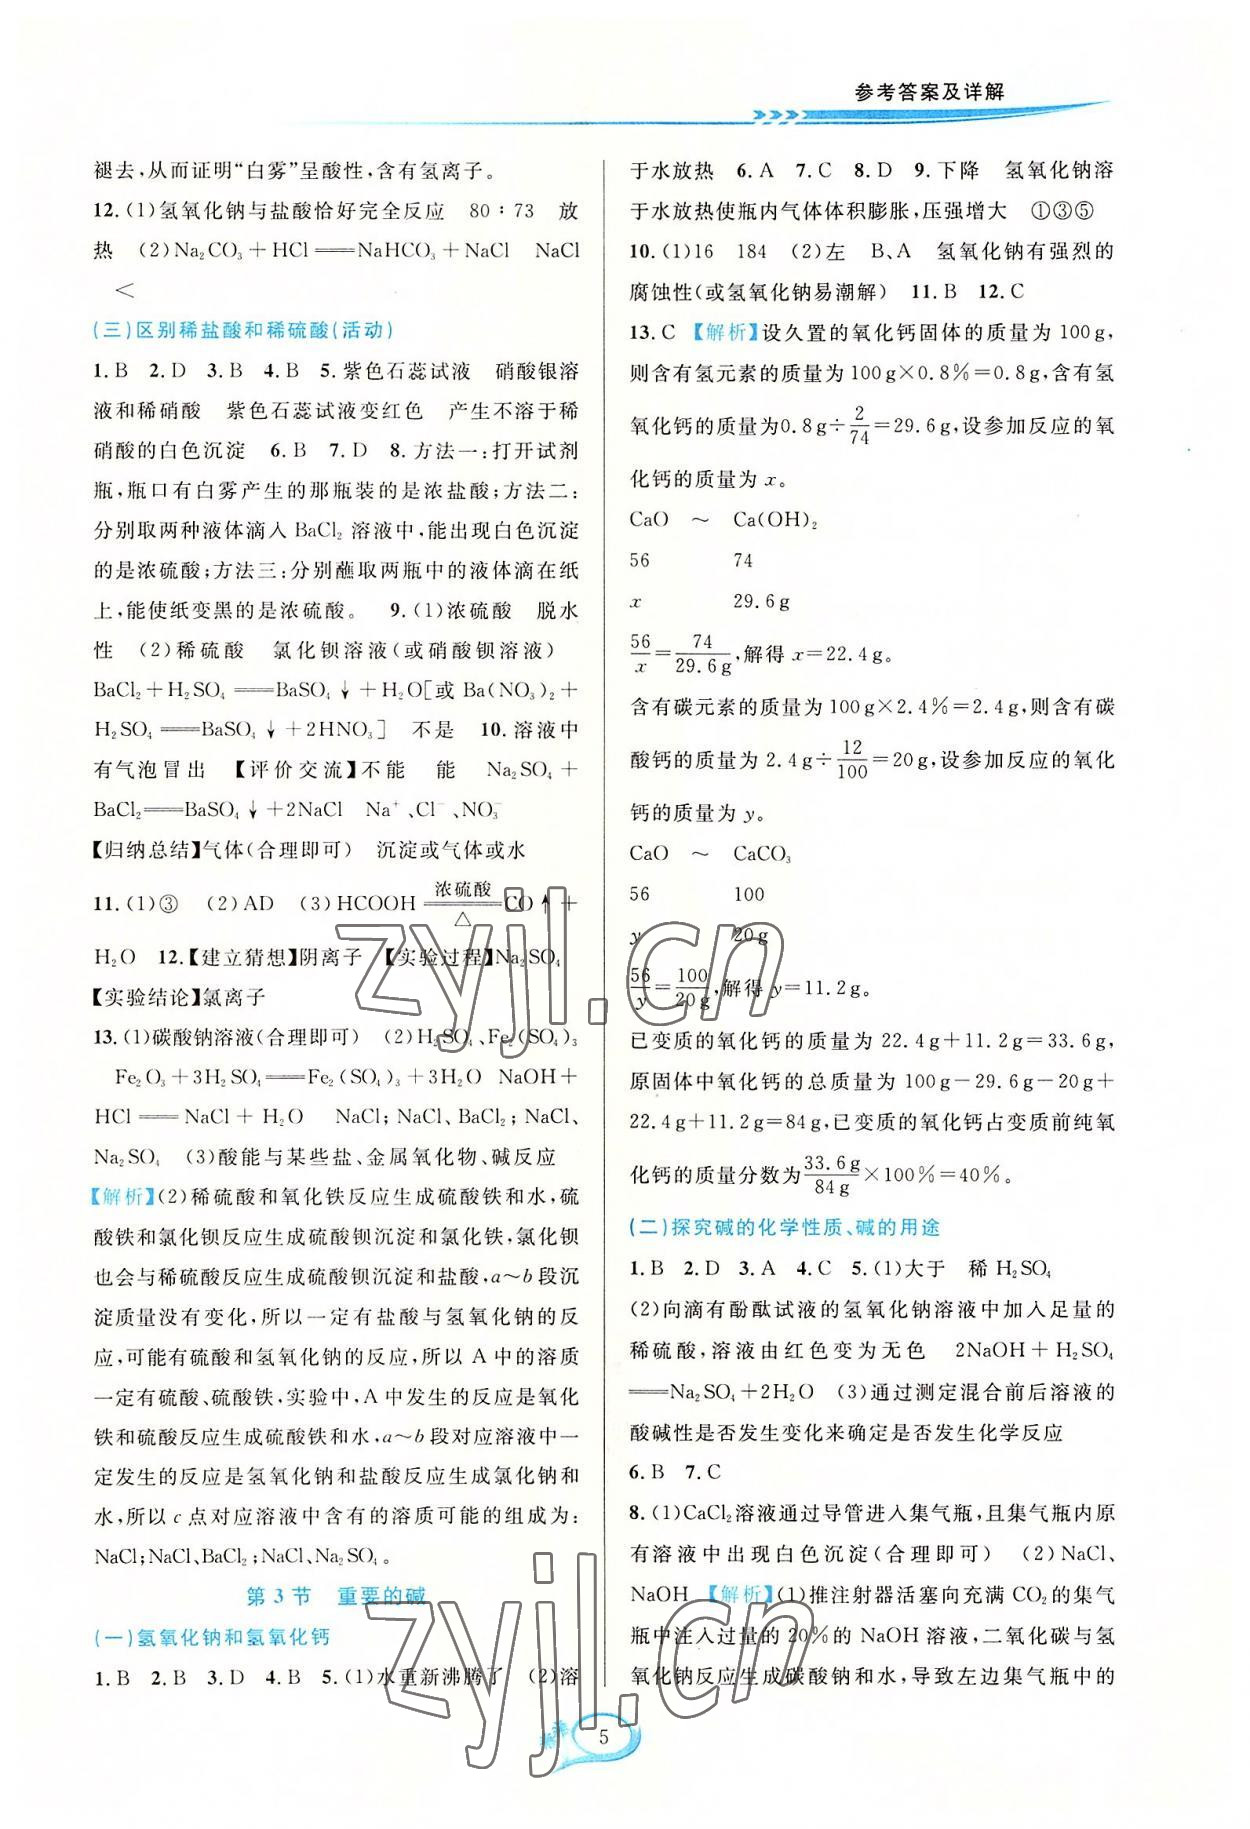 参考答案及详解
褪去,从而证明“白雾”呈酸性,含有氢离子。
12.(1)氢氧化钠与盐酸恰好完全反应 80∶73 放
热 (2)Na₂CO₃+HCl══NaHCO₃+NaCl NaCl
<
(三)区别稀盐酸和稀硫酸(活动)
1.B 2.D 3.B 4.B 5.紫色石蕊试液 硝酸银溶
液和稀硝酸 紫色石蕊试液变红色 产生不溶于稀
硝酸的白色沉淀 6.B 7.D 8.方法一:打开试剂
瓶,瓶口有白雾产生的那瓶装的是浓盐酸;方法二:
分别取两种液体滴入 BaCl₂ 溶液中,能出现白色沉淀
的是浓硫酸;方法三:分别蘸取两瓶中的液体滴在纸
上,能使纸变黑的是浓硫酸。 9.(1)浓硫酸 脱水
性 (2)稀硫酸 氯化钡溶液(或硝酸钡溶液)
BaCl₂+H₂SO₄══BaSO₄↓+H₂O[或 Ba(NO₃)₂+
H₂SO₄══BaSO₄↓+2HNO₃] 不是 10.溶液中
有气泡冒出 【评价交流】不能 能 Na₂SO₄+
BaCl₂══BaSO₄↓+2NaCl Na⁺、Cl⁻、NO₃⁻
【归纳总结】气体(合理即可) 沉淀或气体或水
11.(1)③ (2)AD (3)HCOOH ══浓硫酸△══ CO↑+
H₂O 12.【建立猜想】阴离子 【实验过程】Na₂SO₄
【实验结论】氯离子
13.(1)碳酸钠溶液(合理即可) (2)H₂SO₄、Fe₂(SO₄)₃
Fe₂O₃+3H₂SO₄══Fe₂(SO₄)₃+3H₂O NaOH+
HCl══NaCl+H₂O NaCl;NaCl、BaCl₂;NaCl、
Na₂SO₄ (3)酸能与某些盐、金属氧化物、碱反应
【解析】(2)稀硫酸和氧化铁反应生成硫酸铁和水,硫
酸铁和氯化钡反应生成硫酸钡沉淀和氯化铁,氯化钡
也会与稀硫酸反应生成硫酸钡沉淀和盐酸,a~b 段沉
淀质量没有变化,所以一定有盐酸与氢氧化钠的反
应,可能有硫酸和氢氧化钠的反应,所以 A 中的溶质
一定有硫酸、硫酸铁,实验中,A 中发生的反应是氧化
铁和硫酸反应生成硫酸铁和水,a~b 段对应溶液中一
定发生的反应是氢氧化钠和盐酸反应生成氯化钠和
水,所以 c 点对应溶液中含有的溶质可能的组成为:
NaCl;NaCl、BaCl₂;NaCl、Na₂SO₄。
第 3 节 重要的碱
(一)氢氧化钠和氢氧化钙
1.B 2.B 3.D 4.B 5.(1)水重新沸腾了 (2)溶
于水放热 6.A 7.C 8.D 9.下降 氢氧化钠溶
于水放热使瓶内气体体积膨胀,压强增大 ①③⑤
10.(1)16 184 (2)左 B、A 氢氧化钠有强烈的
腐蚀性(或氢氧化钠易潮解) 11.B 12.C
13.C 【解析】设久置的氧化钙固体的质量为 100g,
则含有氢元素的质量为 100g×0.8%=0.8g,含有氢
氧化钙的质量为0.8g÷2/74=29.6g,设参加反应的氧
化钙的质量为 x。
CaO ~ Ca(OH)₂
56 74
x 29.6g
56/x=74/29.6g,解得 x=22.4g。
含有碳元素的质量为 100g×2.4%=2.4g,则含有碳
酸钙的质量为 2.4g÷12/100=20g,设参加反应的氧化
钙的质量为 y。
CaO ~ CaCO₃
56 100
y 20g
56/y=100/20g,解得 y=11.2g。
已变质的氧化钙的质量为 22.4g+11.2g=33.6g,
原固体中氧化钙的总质量为 100g-29.6g-20g+
22.4g+11.2g=84g,已变质的氧化钙占变质前纯氧
化钙的质量分数为33.6g/84g×100%=40%。
(二)探究碱的化学性质、碱的用途
1.B 2.D 3.A 4.C 5.(1)大于 稀 H₂SO₄
(2)向滴有酚酞试液的氢氧化钠溶液中加入足量的
稀硫酸,溶液由红色变为无色 2NaOH+H₂SO₄
══Na₂SO₄+2H₂O (3)通过测定混合前后溶液的
酸碱性是否发生变化来确定是否发生化学反应
6.B 7.C
8.(1)CaCl₂溶液通过导管进入集气瓶,且集气瓶内原
有溶液中出现白色沉淀(合理即可) (2)NaCl、
NaOH 【解析】(1)推注射器活塞向充满 CO₂的集气
瓶中注入过量的 20%的 NaOH 溶液,二氧化碳与氢
氧化钠反应生成碳酸钠和水,导致左边集气瓶中的
5
zyjl.cn
zyjl.cn